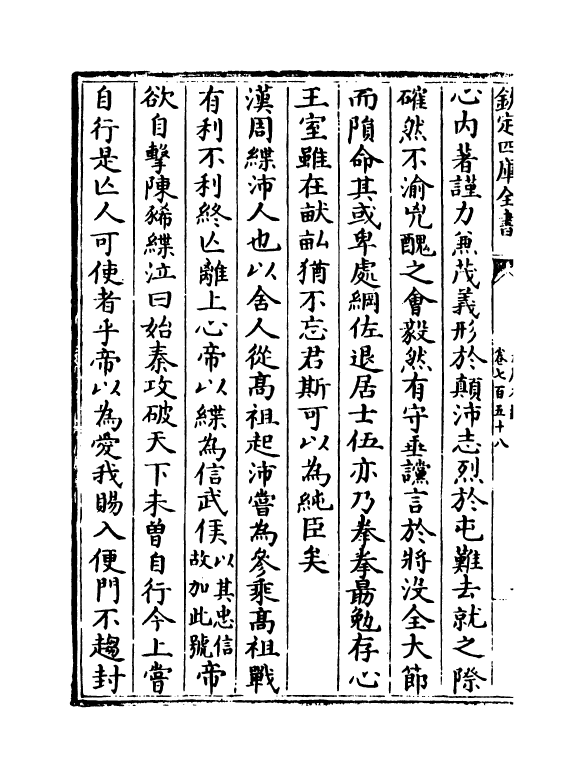 欽定四庫全書
卷七百五十八
心内著謹力兼茂義形於顛沛志烈於屯難去就之際
確然不渝兇醜之會毅然有守垂讜言於將没全大節
而隕命其或卑處綱佐退居士伍亦乃拳拳勗勉存心
王室雖在畎畝猶不忘君斯可以為純臣矣
漢周緤沛人也以舍人從髙祖起沛嘗為參乘髙祖戰
有利不利終亾離上心帝以緤為信武侯以其忠信故加此號帝
欲自擊陳豨緤泣曰始秦攻破天下未曽自行今上嘗
自行是亾人可使者乎帝以為愛我賜入便門不趨封